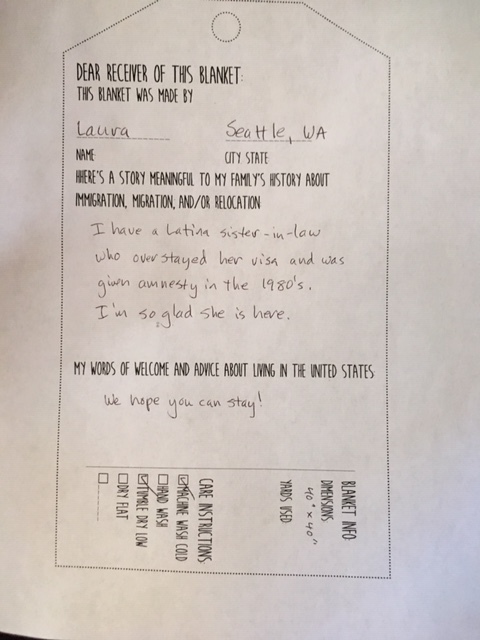 DEAR RECEIVER OF THIS BLANKET:
THIS BLANKET WAS MADE BY
Laura Seattle, WA
NAME CITY STATE
HHERE'S A STORY MEANINGFUL TO MY FAMILY'S HISTORY ABOUT
IMMIGRATION, MIGRATION, AND/OR RELOCATION
I have a Latina sister-in-law
who overstayed her visa and was
given amnesty in the 1980's.
I'm so glad she is here.
MY WORDS OF WELCOME AND ADVICE ABOUT LIVING IN THE UNITED STATES
We hope you can stay!
BLANKET INFO:
DIMENSIONS:
40" x 40"
YARDS USED:
CARE INSTRUCTIONS:
MACHINE WASH COLD
HAND WASH
TUMBLE DRY LOW
DRY FLAT